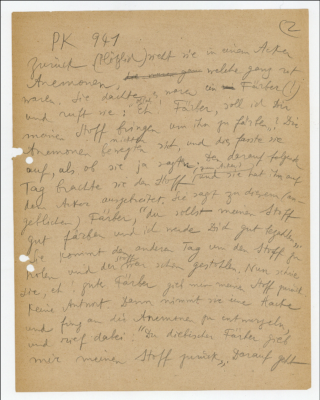 2
PK 941
Zurück (Plötzlich) sieht sie in einem Acker
Anemonen, welche ganz rot
waren. Sie dachte, es wäre ein Färber (!)
und ruft sie: Eh Färber, soll ich Dir
meine Stoff bringen um ihn zu färben! Die
Anemone bewegten sich, und das fasste sie
auf, als ob sie ja sagten. Den darauf folgenden
Tag brachte sie den Stoff und sie hat ihn auf
dem Acker ausgebreitet. Sie sagt zu diesem (an-
geblichen) Färber, "du sollst meinen Stoff
gut färben und ich werde Dich gut bezahlen."
Sie kommt den anderen Tag um den Stoff zu
holen und der war schon gestohlen. Nun schrie
sie, eh: gute Färber gieb mir meine Stoff zurück.
Keine Antwort. Dann nimmt sie eine Hacke
und fing an die Anemone zu entwurzeln,
und rief dabei: "Du diebischer Färber gieb
mir meinen Stoff zurück". Darauf geht